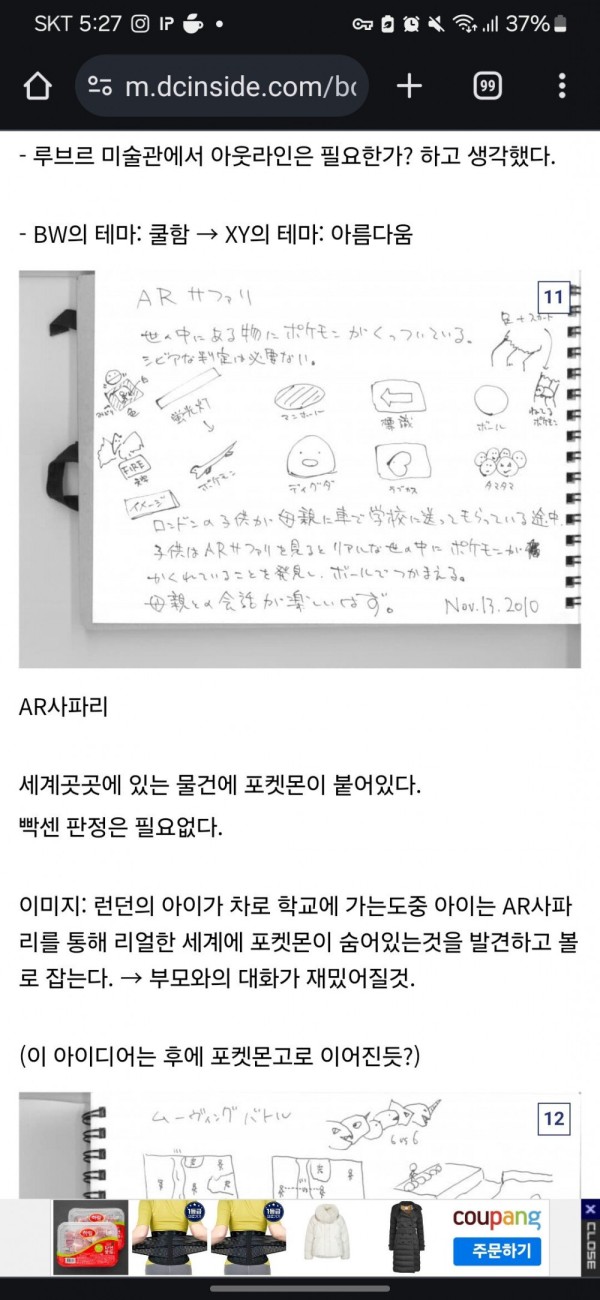 SKT 5:27 IP 37%
m.dcinside.com/bo 99
- 루브르 미술관에서 아웃라인은 필요한가? 하고 생각했다.
- BW의 테마: 쿨함 → XY의 테마: 아름다움
11
ARサファリ
世の中にある物にポケモンがくっついている。
シビアな判定は必要ない。
蛍光灯
マンホール
標識
ボール
ねてるポケモン
FIRE
ポケモン
ディグダ
ラブカス
タマタマ
イメージ
ロンドンの子供が母親に車で学校に送ってもらっている途中、
子供はARサファリを見るとリアルな世の中にポケモンが
かくれていることを発見し、ボールでつかまえる。
母親との会話が楽しいはず。 Nov.13.2010
AR사파리
세계곳곳에 있는 물건에 포켓몬이 붙어있다.
빡센 판정은 필요없다.
이미지: 런던의 아이가 차로 학교에 가는도중 아이는 AR사파
리를 통해 리얼한 세계에 포켓몬이 숨어있는것을 발견하고 볼
로 잡는다. → 부모와의 대화가 재밌어질것.
(이 아이디어는 후에 포켓몬고로 이어진듯?)
12
ムーヴィングバトル
6 vs 6
1등급
1등급
coupang
주문하기
X CLOSE